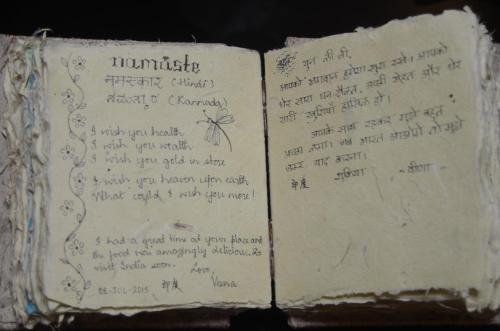 namaste
नमस्कार (Hindi)
ನಮಸ್ಕಾರ (Kannada)
I wish you health
I wish you wealth
I wish you gold in store
I wish you heaven upon earth
What could I wish you more!
I had a great time at your place and
the food was amazingly delicious. Do
visit India soon.
Love
JUL-2015 印度
ली जी,
आपको भगवान हमेशा खुश रखे। आपको
ढेर सारा धन-दौलत, अच्छी सेहत और ढेर
सारी खुशियाँ हासिल हो।
आपके साथ रहकर मुझे बहुत
अच्छा लगा। जब भारत आओगे तो मुझे
जरूर याद करना।
印度 शुक्रिया - वीणा